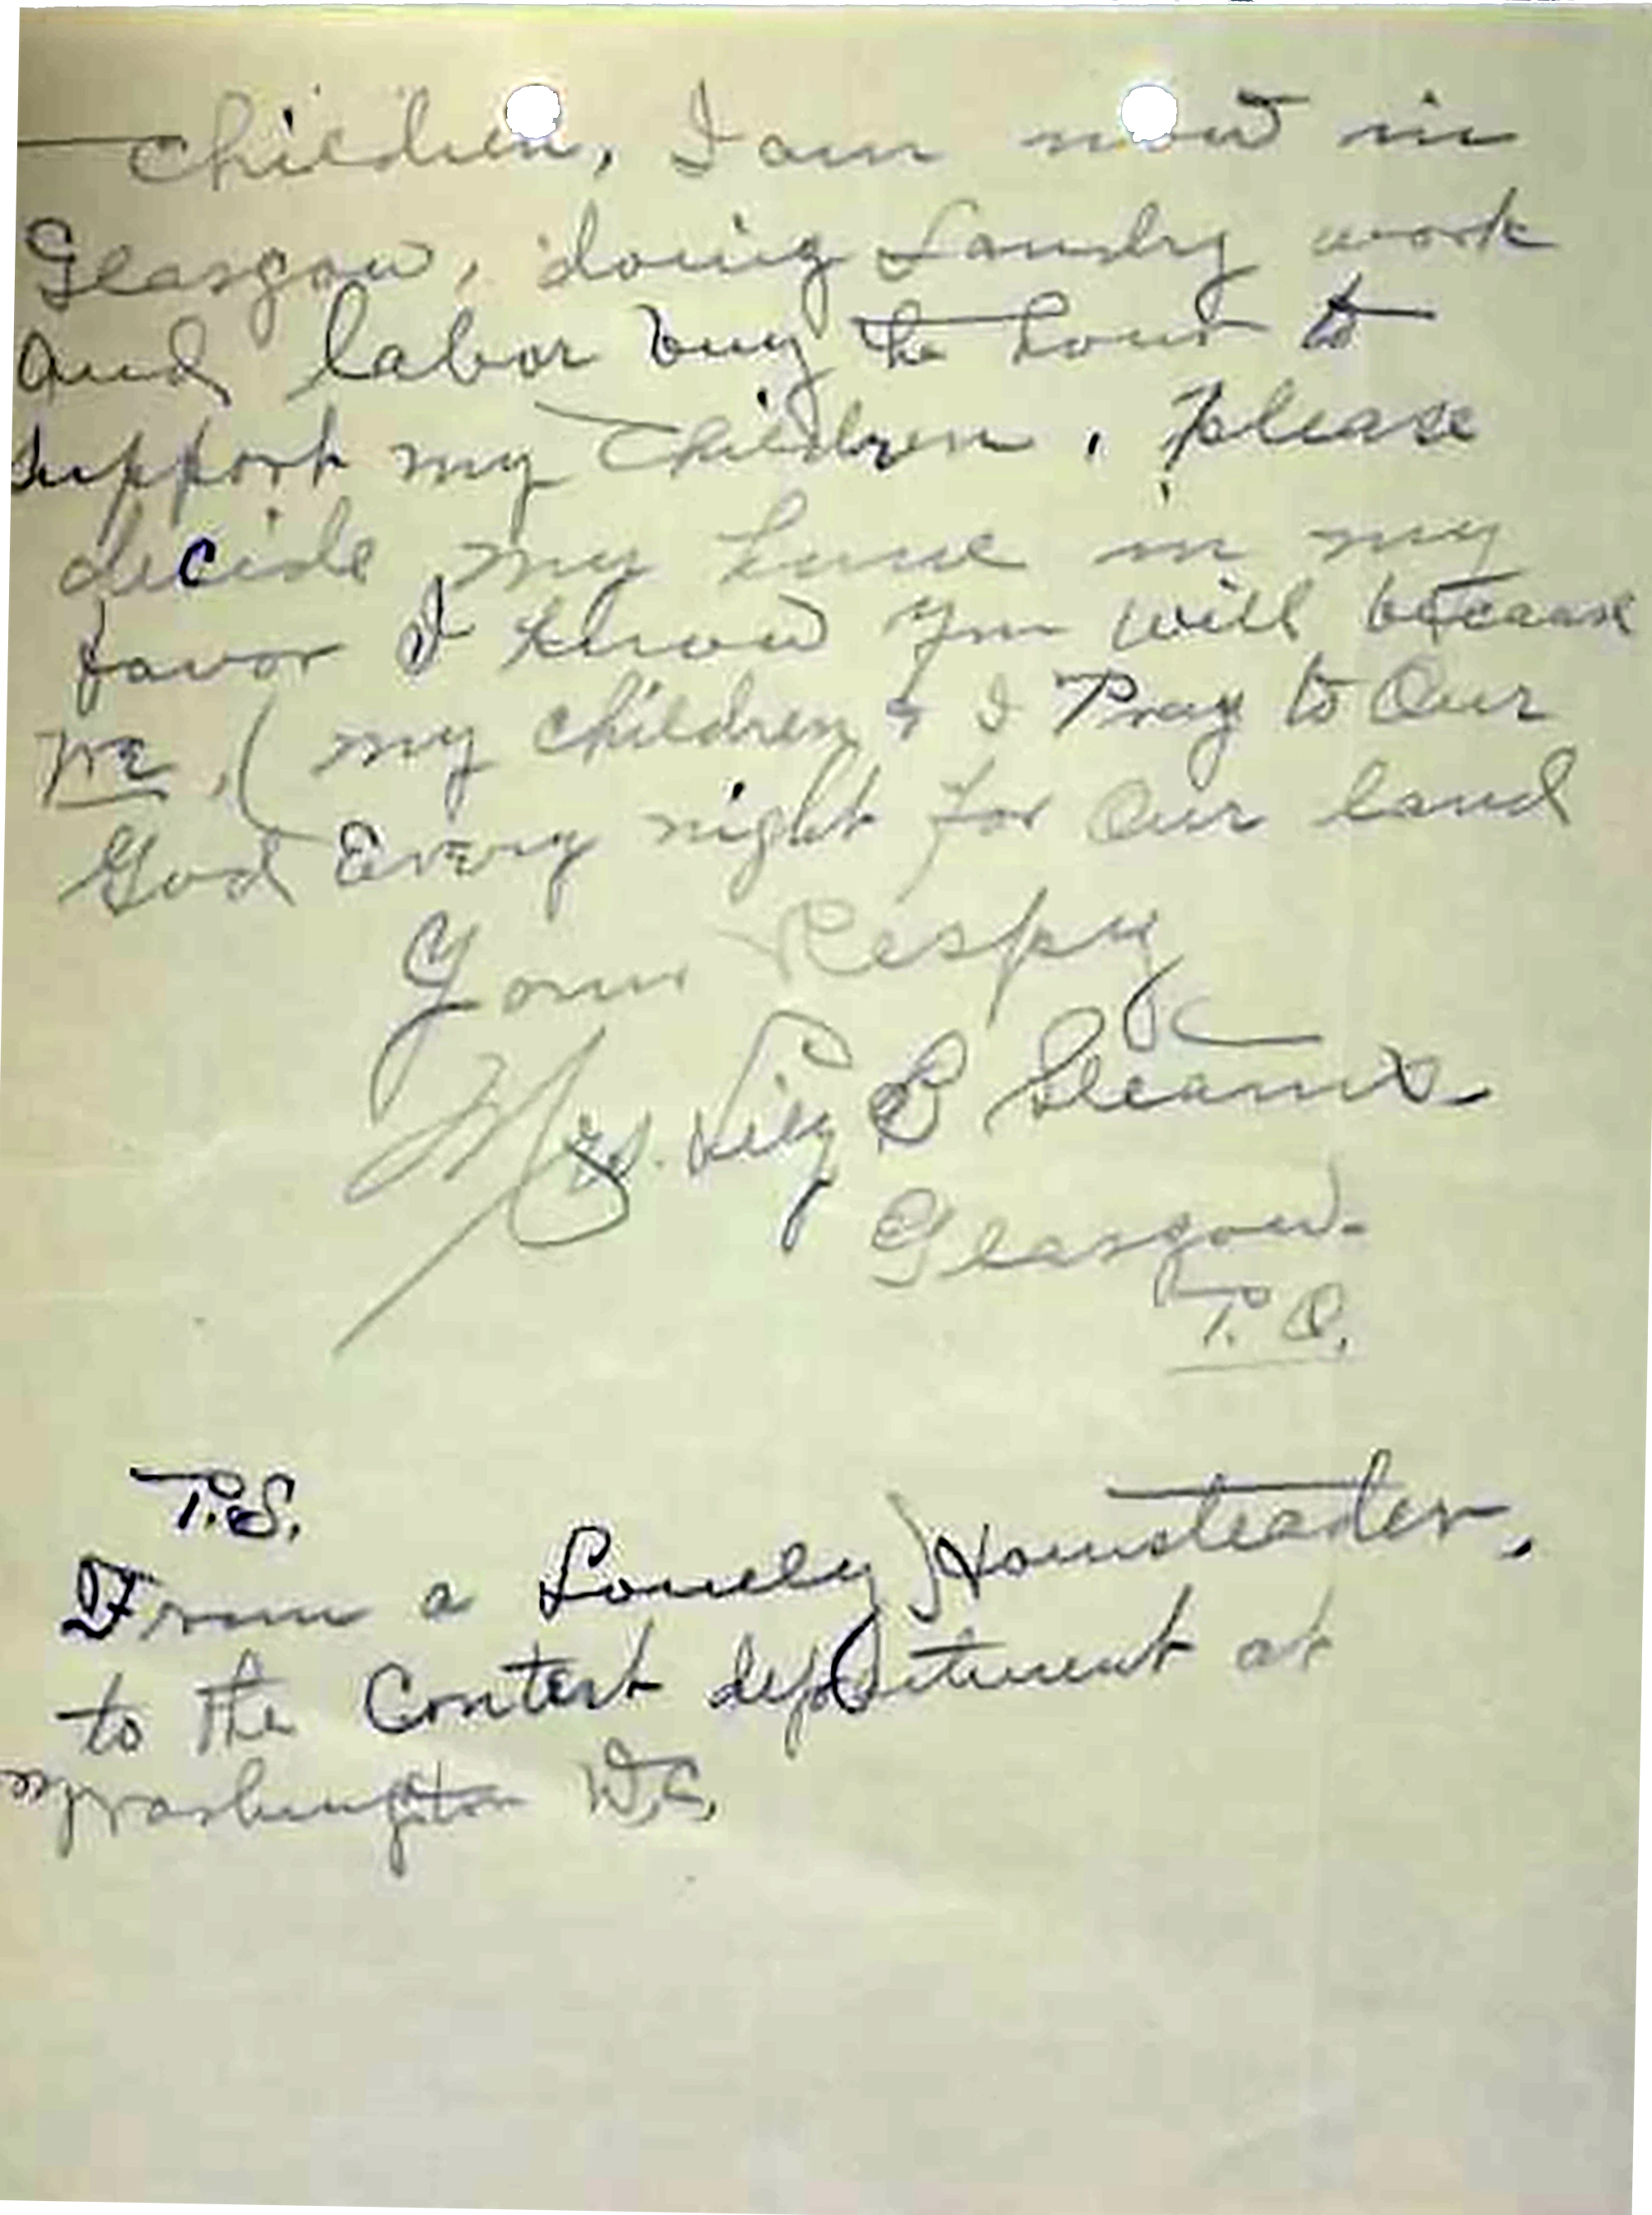 children, I am now in
Glasgow, doing Landry work
and labor buy the hour to
support my children. Please
decide my in my
favor I know you will because
we, ( my children & I Pray to Our
God Every night for Our land
Your Respy
Mrs. Lily B Stearns
Glasgow.
P.O.
P.S.
From a Lonely Homsteader,
to the Contest department at
Washington D.C.